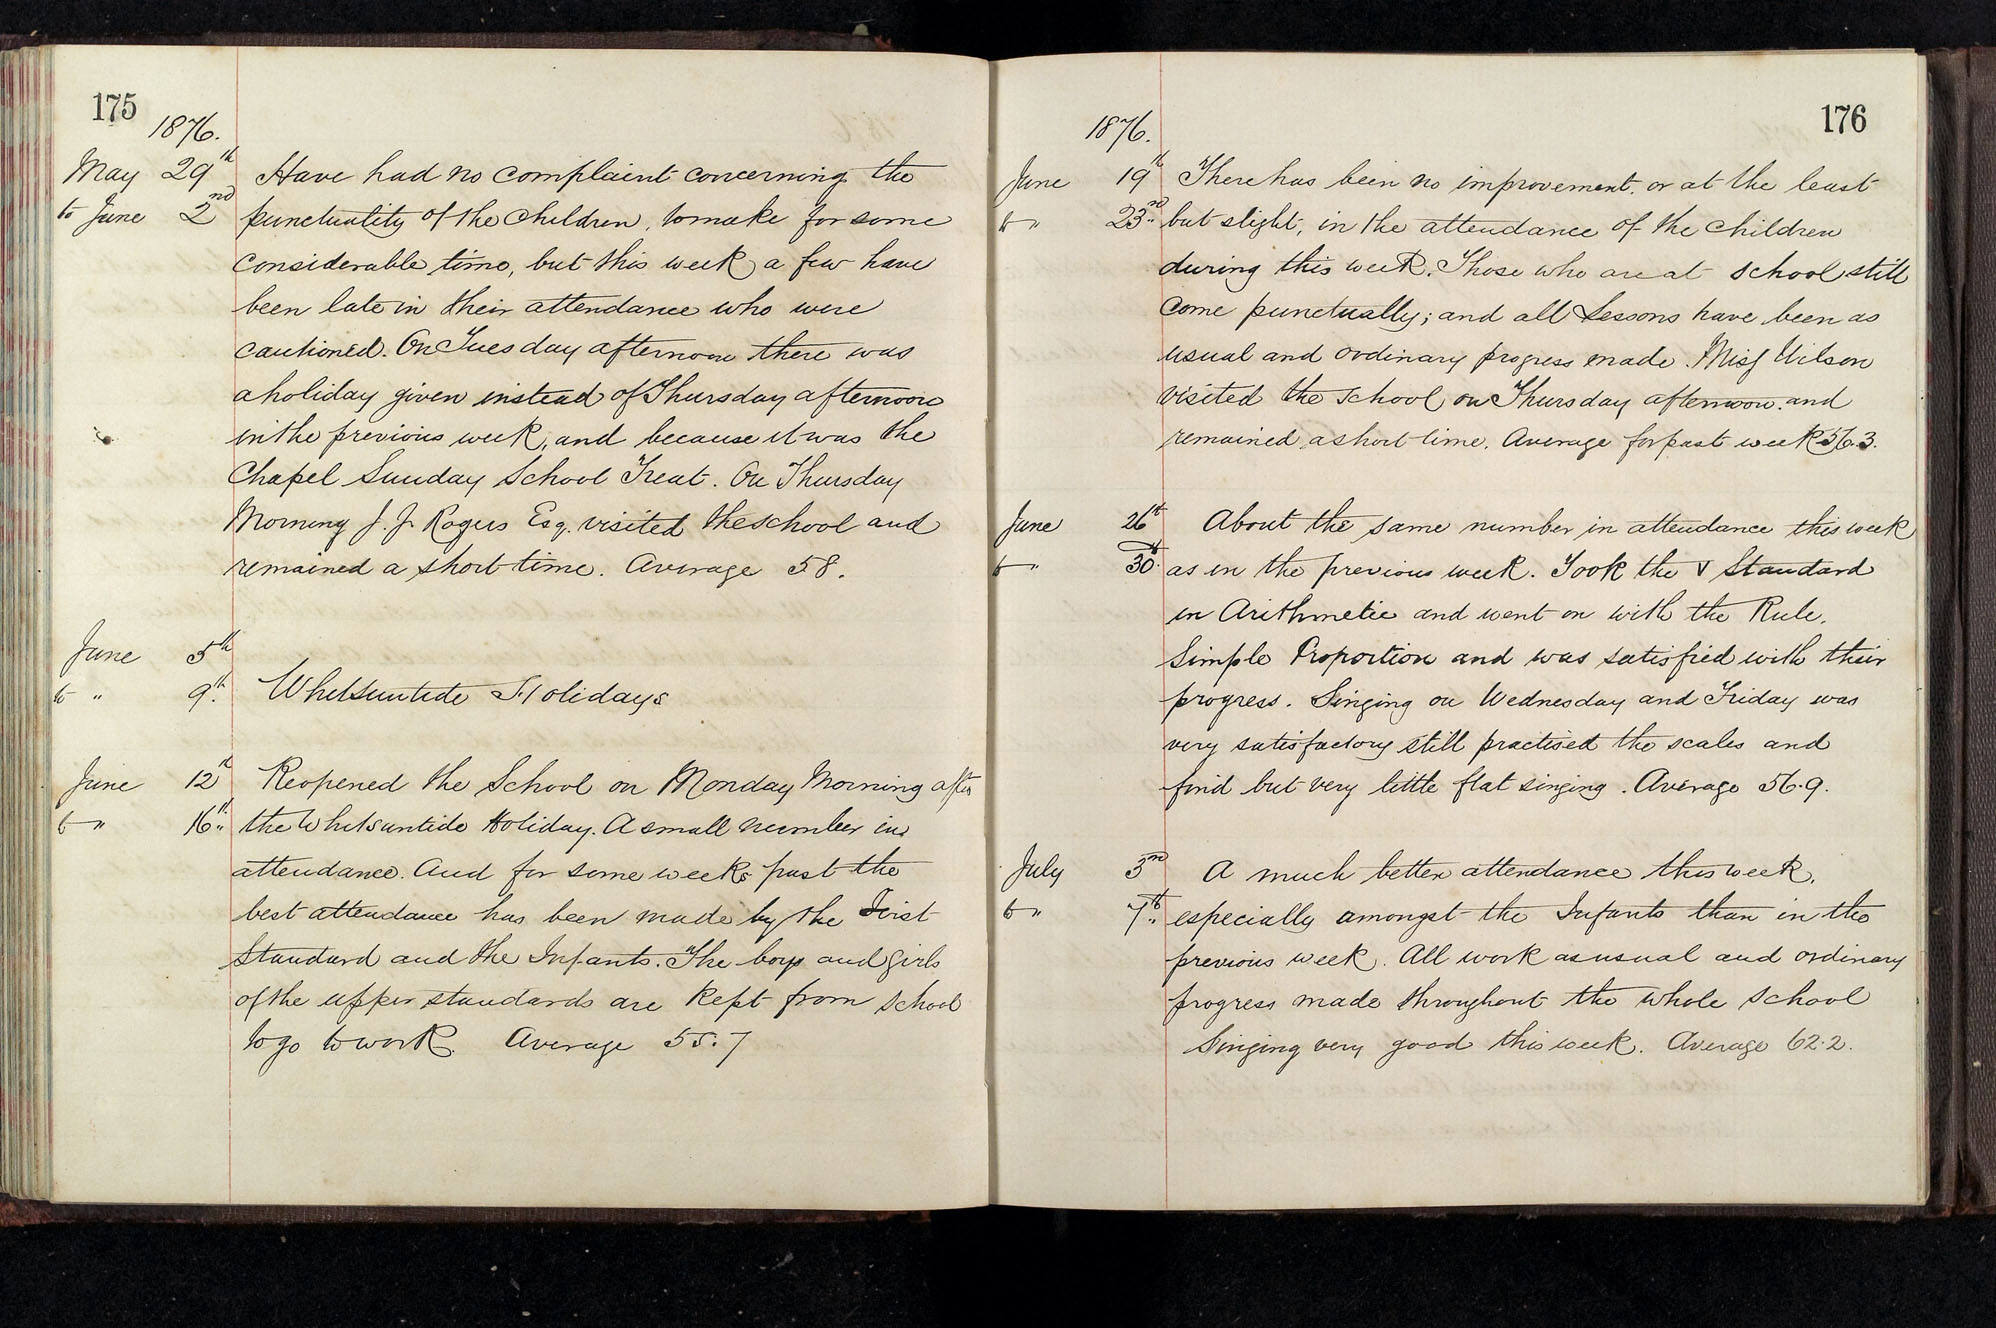 175
1876.
May 29th Have had no complaint concerning the
to June 2nd punctuality of the children, to make for some
considerable time, but this week a few have
been late in their attendance who were
cautioned. On Tuesday afternoon there was
a holiday given instead of Thursday afternoon
in the previous week, and because it was the
Chapel Sunday School Treat. On Thursday
Morning J. J. Rogers Esq. visited the school and
remained a short time. Average 58.
June 5th
to " 9th. Whitsuntide Holidays
June 12th Reopened the School on Monday Morning after
to " 16th. the Whitsuntide Holiday. A small number in
attendance. And for some weeks past the
best attendance has been made by the First
Standard and the Infants. The boys and girls
of the upper standards are kept from school
to go to work. Average 55.7
176
1876.
June 19th There has been no improvement, or at the least
to " 23rd but slight, in the attendance of the children
during this week. Those who are at school still
come punctually; and all Lessons have been as
usual and ordinary progress made. Miss Wilson
visited the school on Thursday afternoon and
remained a short time. Average for past week 56.3.
June 26th About the same number in attendance this week
to " 30th. as in the previous week. Took the V Standard
in Arithmetic and went on with the Rule.
Simple Proportion and was satisfied with their
progress. Singing on Wednesday and Friday was
very satisfactory still practised the scales and
find but very little flat singing. Average 56.9.
July 3rd A much better attendance this week,
to " 7th. especially amongst the Infants than in the
previous week. All work as usual and ordinary
progress made throughout the whole school
Singing very good this week. Average 62.2.